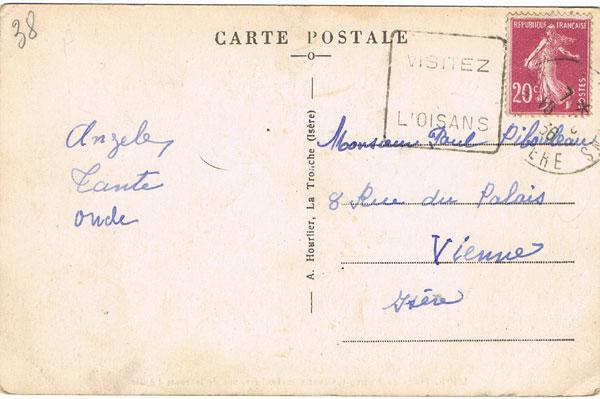 38
CARTE POSTALE
REPUBLIQUE FRANÇAISE
20c
POSTES
VISITEZ
L'OISANS
Angele
Tante
Oncle
A. Hourlier, La Tronche (Isère)
Monsieur Paul
8 Rue du Palais
Vienne
Isère